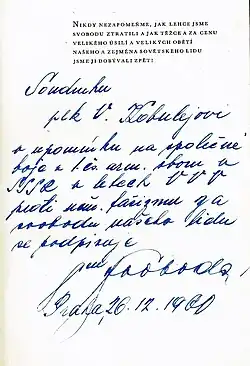 NIKDY NEZAPOMEŇME, JAK LEHCE JSME
SVOBODU ZTRATILI A JAK TĚŽCE A ZA CENU
VELIKÉHO ÚSILÍ A VELIKÝCH OBĚTÍ
NAŠEHO A ZEJMÉNA SOVĚTSKÉHO LIDU
JSME JI DOBÝVALI ZPĚT!
Soudruhu
plk V. Kobulejovi
na společné
boje s 1. čs. arm. sborem v
SSSR v letech V V V
proti něm. fašizmu za
svobodu našeho lidu
se podpisuje
Svoboda
Praha, 20. 12. 1960